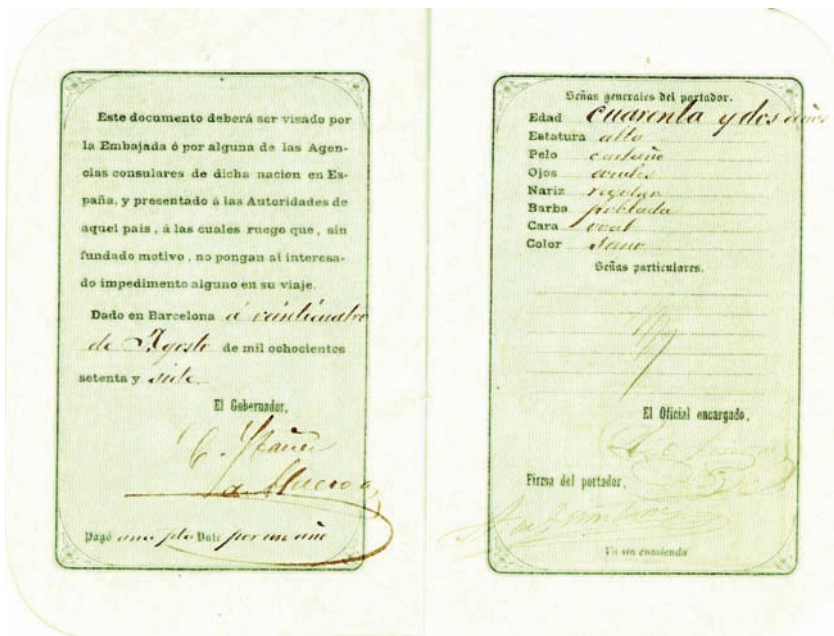 Este documento deberá ser visado por
la Embajada ó por alguna de las Agen-
cias consulares de dicha nacion en Es-
paña, y presentado á las Autoridades de
aquel pais, á las cuales ruego que, sin
fundado motivo, no pongan al interesa-
do impedimento alguno en su viaje.
Dado en Barcelona á veinticuatro
de Agosto de mil ochocientos
setenta y siete
El Gobernador,
Pagó una pta Vale por un año
Señas generales del portador.
Edad cuarenta y dos años
Estatura alta
Pelo castaño
Ojos azules
Nariz regular
Barba poblada
Cara oval
Color sano
Señas particulares.
El Oficial encargado,
Firma del portador,
Va sin enmienda